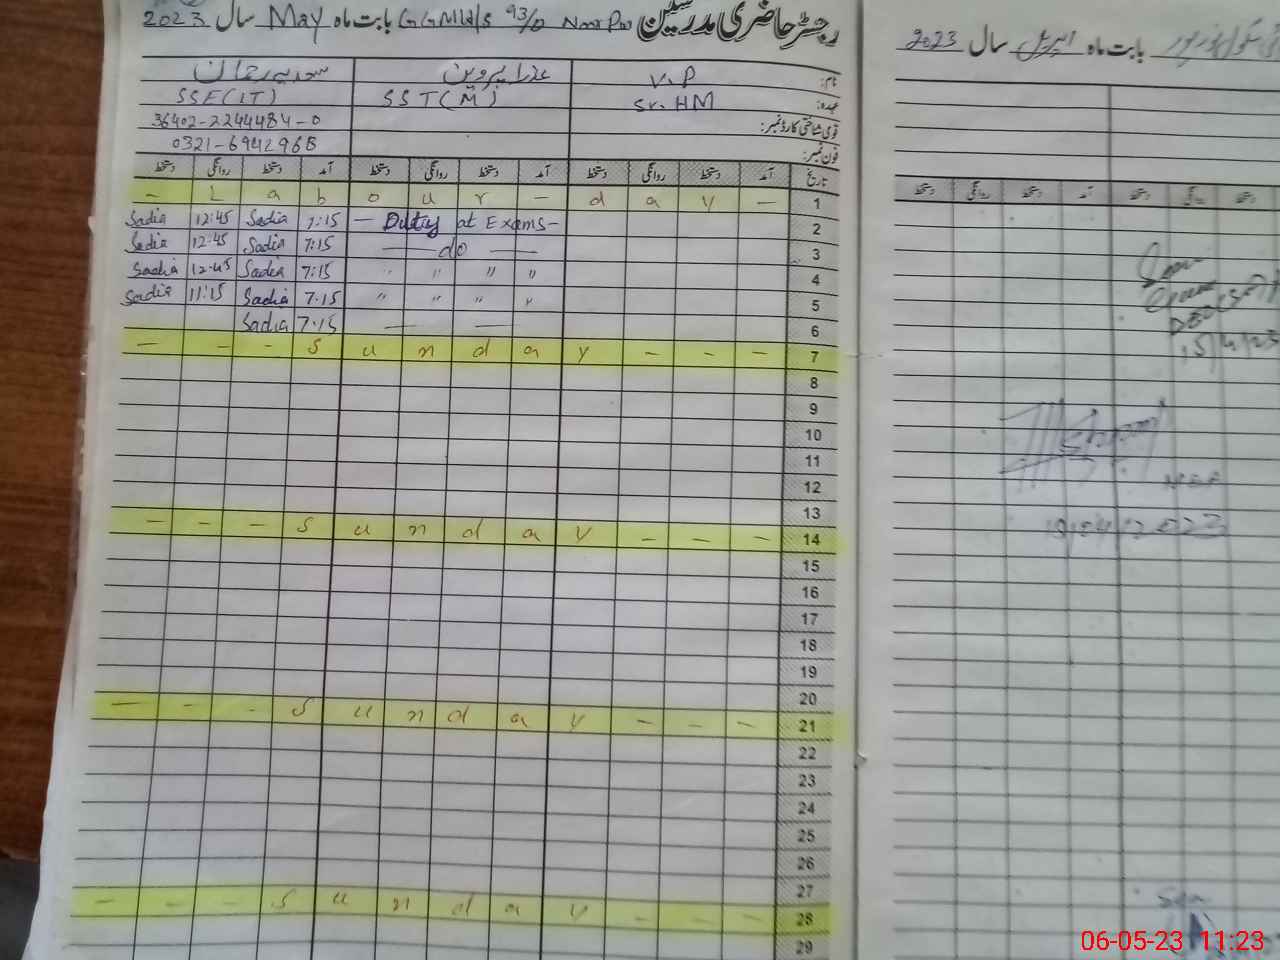 رجسٹر حاضری مدرسین GGMHS 93/D Noor Pur بابت ماہ May سال 2023
نام: V.P عذرا پروین سعدیہ رحمان
عہدہ: Sr. HM SST(M) SSE(IT)
قومی شناختی کارڈ نمبر: 36402-2244484-0
فون نمبر: 0321-6942968
تاریخ آمد دستخط روانگی دستخط آمد دستخط روانگی دستخط آمد دستخط روانگی دستخط
- L a b o u r - d a y - 1
Sadia 12:45 Sadia 7:15 — Duty at Exams — 2
Sadia 12:45 Sadia 7:15 — do — 3
Sadia 12:45 Sadia 7:15 " " " " 4
Sadia 11:15 Sadia 7:15 " " " " 5
Sadia 7:15 — — 6
- - - S u n d a y - - - 7
8
9
10
11
12
13
- - - S u n d a y - - - 14
15
16
17
18
19
20
- - - S u n d a y - - - 21
22
23
24
25
26
27
- - - S u n d a y - - - 28
29
بابت ماہ اپریل سال 2023
دستخط روانگی دستخط آمد دستخط روانگی دستخط
06-05-23 11:23